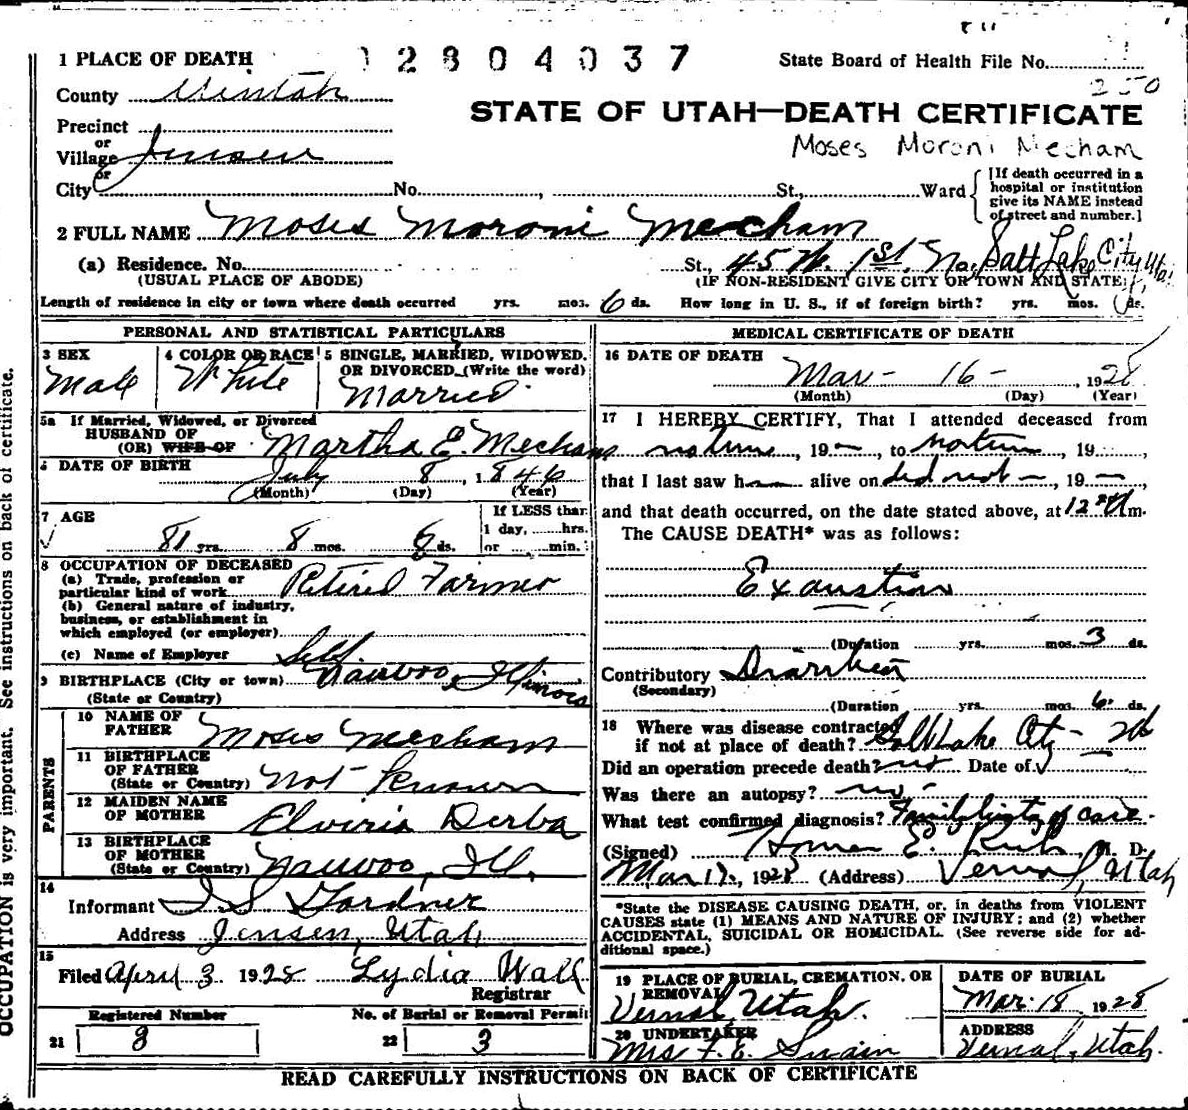 1 PLACE OF DEATH 12804037 State Board of Health File No.
250
County Uintah
STATE OF UTAH—DEATH CERTIFICATE
Precinct
or
Village Jensen
Moses Moroni Mecham
or
City No. , St., Ward
[If death occurred in a
hospital or institution
give its NAME instead
of street and number.]
2 FULL NAME Moses Moroni Mecham
(a) Residence. No. St., 45 N. 1st. No. Salt Lake City Uta.
(USUAL PLACE OF ABODE) (IF NON-RESIDENT GIVE CITY OR TOWN AND STATE)
Length of residence in city or town where death occurred yrs. mos. 6 ds. How long in U. S., if of foreign birth? yrs. mos. ds.
PERSONAL AND STATISTICAL PARTICULARS
3 SEX 4 COLOR OR RACE 5 SINGLE, MARRIED, WIDOWED,
OR DIVORCED (Write the word)
Male White Married
5a If Married, Widowed, or Divorced
HUSBAND OF
(OR) WIFE OF Martha E. Mecham
6 DATE OF BIRTH
July 8, 1846
(Month) (Day) (Year)
7 AGE If LESS than
1 day, hrs.
81 yrs. 8 mos. 8 ds. or min.
8 OCCUPATION OF DECEASED
(a) Trade, profession or
particular kind of work Retired Farmer
(b) General nature of industry,
business, or establishment in
which employed (or employer)
(c) Name of Employer Self
9 BIRTHPLACE (City or town) Nauvoo, Illinois
(State or Country)
PARENTS
10 NAME OF
FATHER Moses Mecham
11 BIRTHPLACE
OF FATHER
(State or Country) Not Known
12 MAIDEN NAME
OF MOTHER Elviria Derba
13 BIRTHPLACE
OF MOTHER
(State or Country) Nauvoo, Ill.
14
Informant I S Gardner
Address Jensen, Utah
15
Filed April 3 1928 Lydia Wall
Registrar
Registered Number No. of Burial or Removal Permit
21 8 22 3
MEDICAL CERTIFICATE OF DEATH
16 DATE OF DEATH
Mar- 16- , 1928
(Month) (Day) (Year)
17 I HEREBY CERTIFY, That I attended deceased from
, 19 , to , 19 ,
that I last saw h alive on did not , 19 ,
and that death occurred, on the date stated above, at 12 m.
The CAUSE DEATH* was as follows:
Exaustion
(Duration yrs. mos. 3 ds.
Contributory Diarrhea
(Secondary)
(Duration yrs. mos. 6 ds.
18 Where was disease contracted
if not at place of death? Salt Lake City - Ut
Did an operation precede death? no Date of
Was there an autopsy? no -
What test confirmed diagnosis? of case.
(Signed) Homer E. Rich M. D.
Mar 17, 1928 (Address) Vernal, Utah
*State the DISEASE CAUSING DEATH, or, in deaths from VIOLENT
CAUSES state (1) MEANS AND NATURE OF INJURY; and (2) whether
ACCIDENTAL, SUICIDAL OR HOMICIDAL. (See reverse side for ad-
ditional space.)
19 PLACE OF BURIAL, CREMATION, OR DATE OF BURIAL
REMOVAL
Vernal, Utah. Mar. 18, 1928
20 UNDERTAKER ADDRESS
Mrs F. E. Swain Vernal, Utah.
READ CAREFULLY INSTRUCTIONS ON BACK OF CERTIFICATE
OCCUPATION is very important. See instructions on back of certificate.